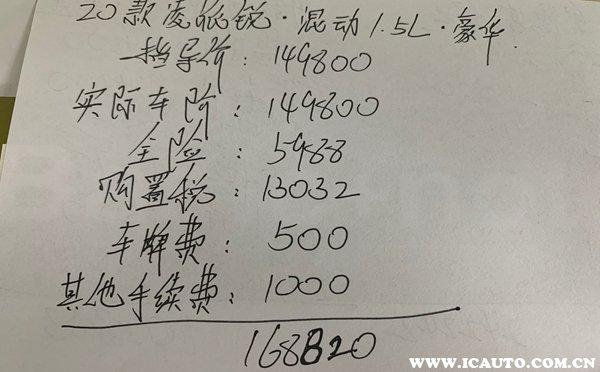 20款凌派锐·混动1.5L·豪华
指导价：149800
实际车价：149800
全险：5988
购置税：13032
车牌费：500
其他手续费：1000
168320
WWW.ICAUTO.COM.CN